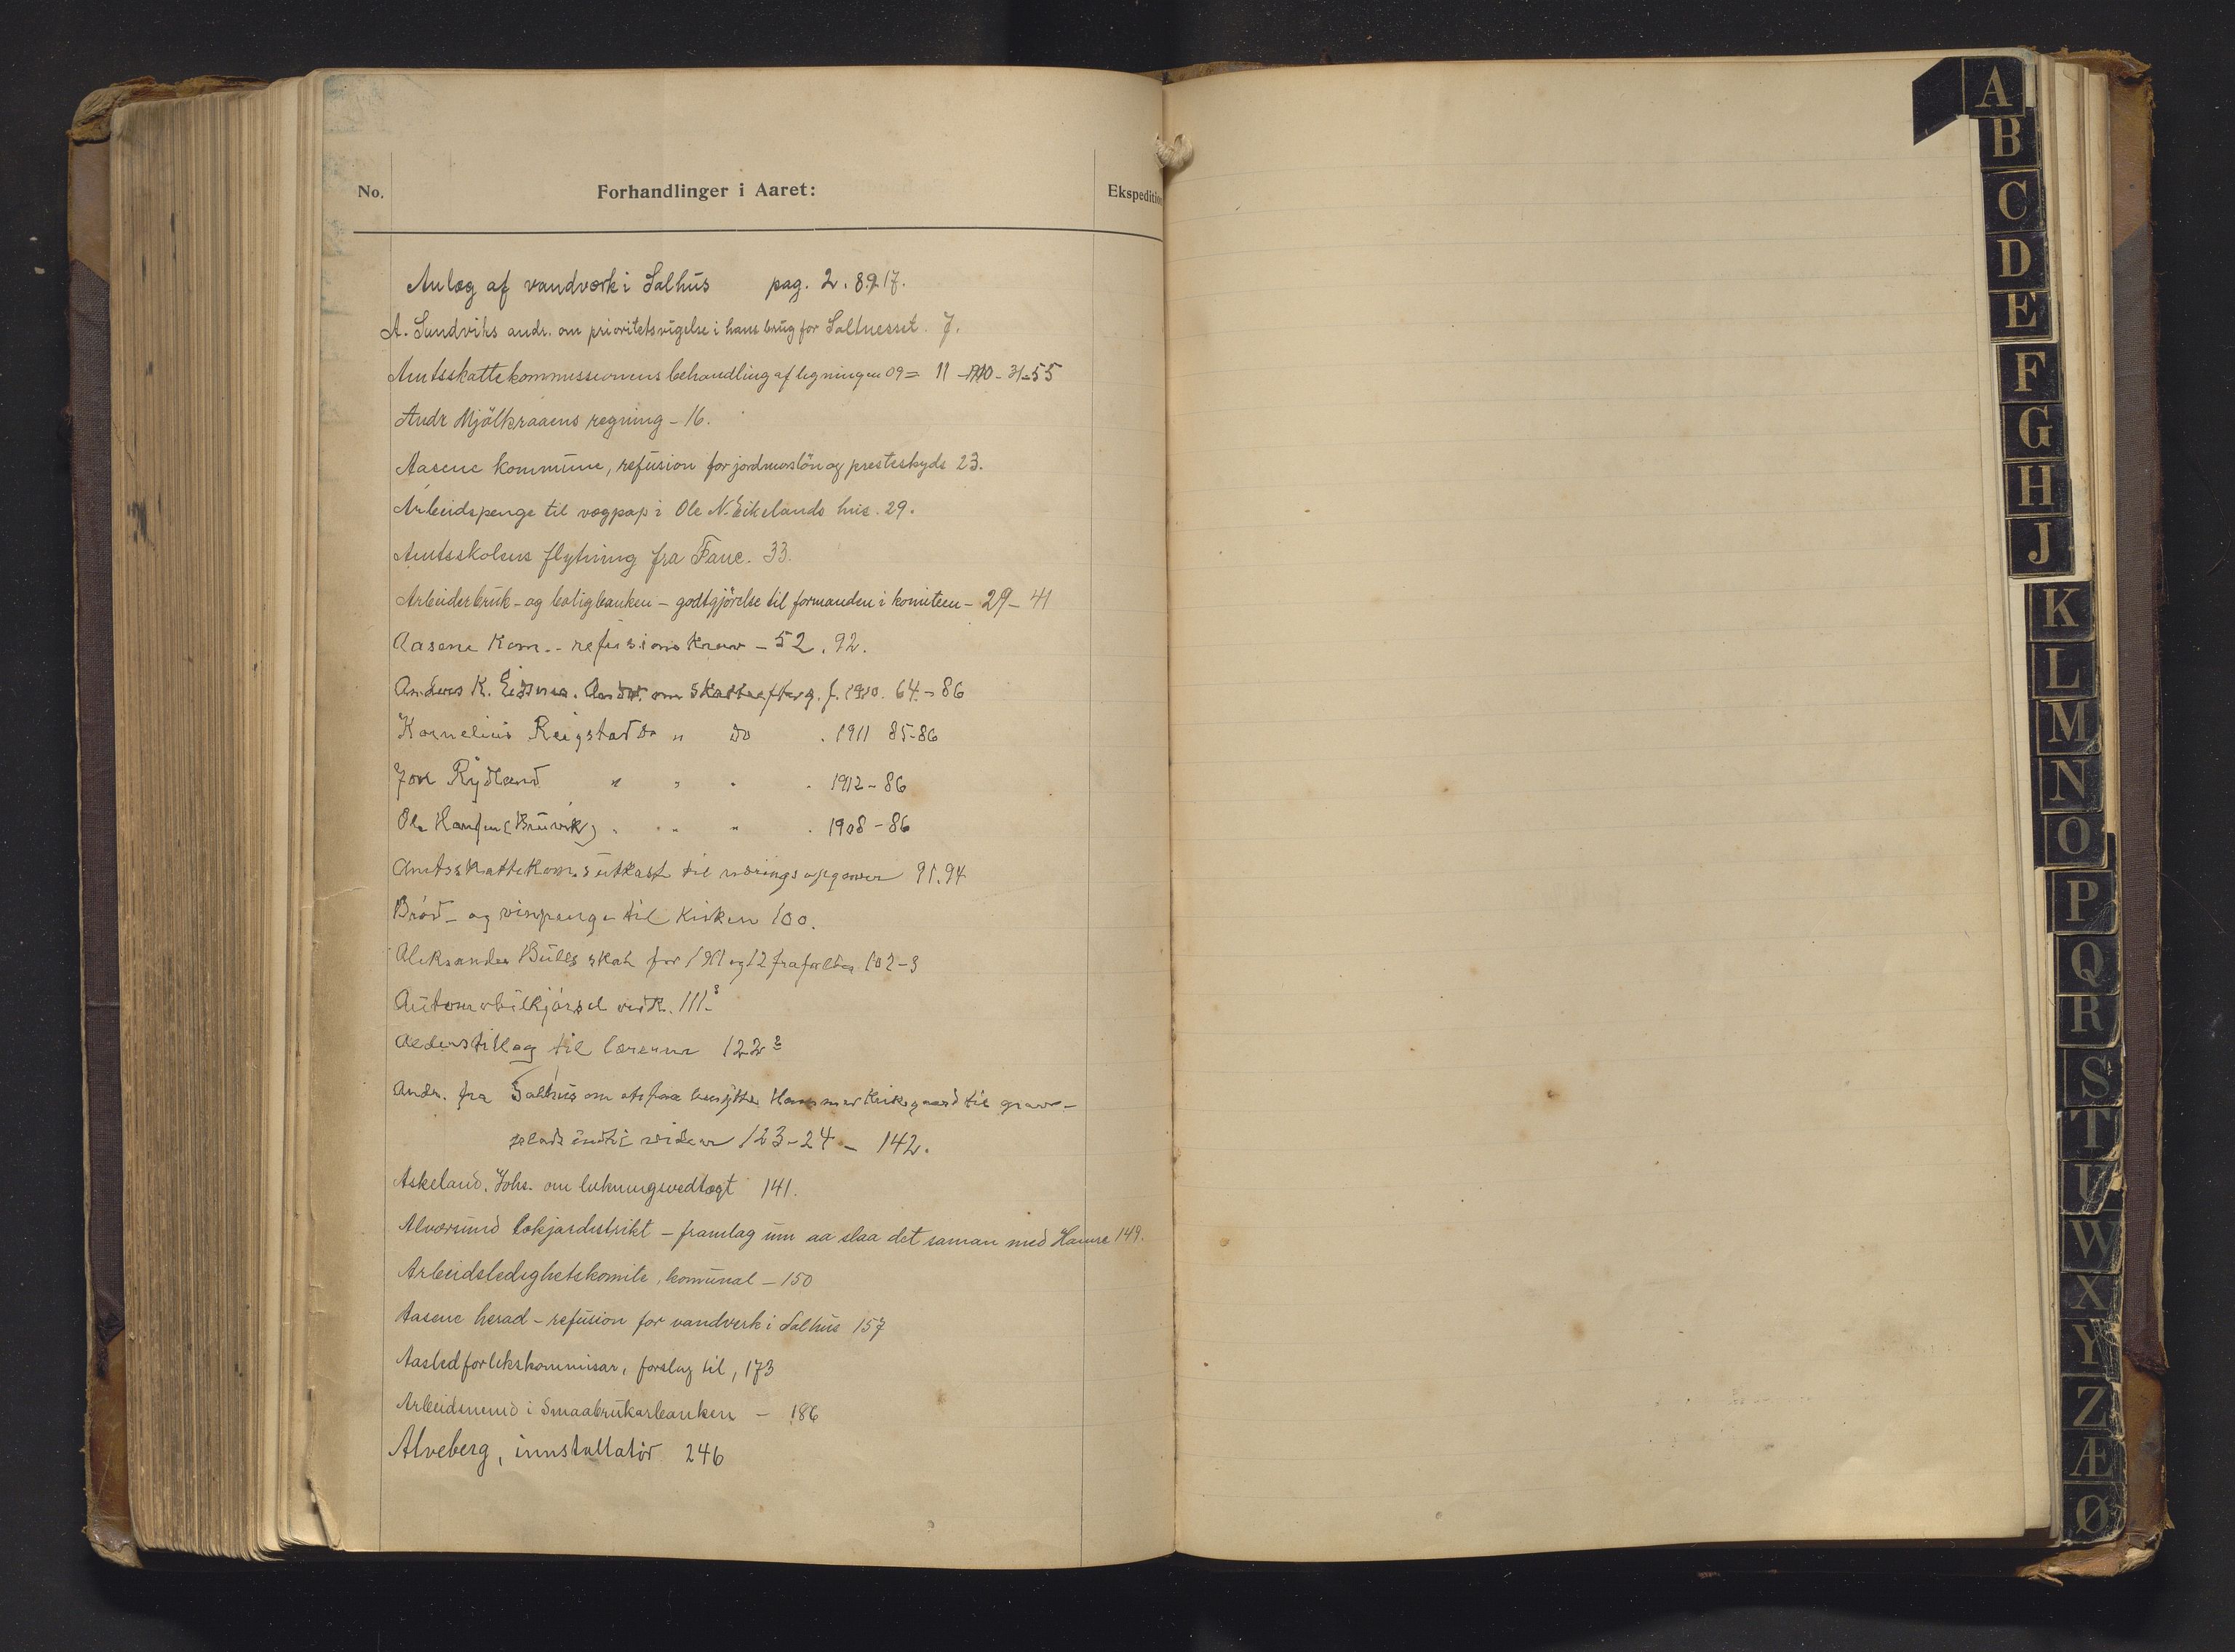 No.
Forhandlinger i Aaret:
Ekspedition
Anlæg af vandværk i Salhus pag. 2. 8.9.17.
A. Sundviks andr. om prioritetsvigelse i hans brug for Saltnesset. 7.
Amtsskattekommissionens behandling af ligningen 09 = 11 - 1910 - 31-55
Andr Mjölkraaens regning - 16.
Aasene kommune, refusion for jordmorlön og presteskyds 23.
Arbeidspenge til vægpap i Ole N. Eikelands hus. 29.
Amtsskolens flytning fra Fane. 33.
Arbeiderbruk- og boligbanken - godtgjörelse til formanden i komiteen - 29 - 41
Aasene Kom. - refusions krav - 52. 92.
Anders K. Eidsnes. Andr. om skatteefterg. f. 1910. 64 - 86
Kornelius Reigstad do " do . 1911 85-86
Jon Rydland " " . . 1912 - 86
Ole Hansen (Bruvik) . " " . 1908 - 86
Amtsskattekom.s utkast til næringsopgaver 91. 94
Bröd- og vinpenge til kirken 100.
Aleksander Bulls skat for 1911 og 12 frafaldes 102-3
Automobilkjörsel vedk. 111.³
Alderstillæg til lærerne 122²
Andr. fra Salhus om at faa benytte Hammer Kirkegaard til grav-
plads indtil videre 123-24 - 142.
Askeland, Johs. om lukningsvedtægt 141.
Alversund lækjardistrikt - framlag um aa slaa det saman med Hamre 149.
Arbeidsledighetskomite, komunal - 150
Aasene herad - refusion for vandverk i Salhus 157
Aastedforlikskommisær, forslag til, 173
Arbeidsnemd i Smaabrukarbanken - 186
Alveberg, innstallatör 246
A
B
C
D
E
F
G
H
J
K
L
M
N
O
P
Q
R
S
T
U
W
X
Y
Z
Æ
Ø